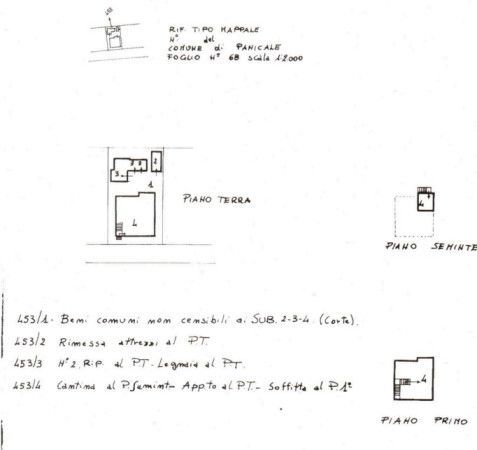 453
RIF. TIPO MAPPALE
N° del
COMUNE di PANICALE
FOGLIO N° 68 scala 1:2000
3
3
3
2
1
4
PIANO TERRA
4
PIANO SEMINTE
453/1- Beni comuni non censibili ai SUB. 2-3-4 (Corte).
453/2 Rimessa attrezzi al PT.
453/3 N°2. Rip. al PT- Legnaia al PT.
453/4 Cantina al PSemint- App.to al PT- Soffitta al P.1°
4
PIANO PRIMO